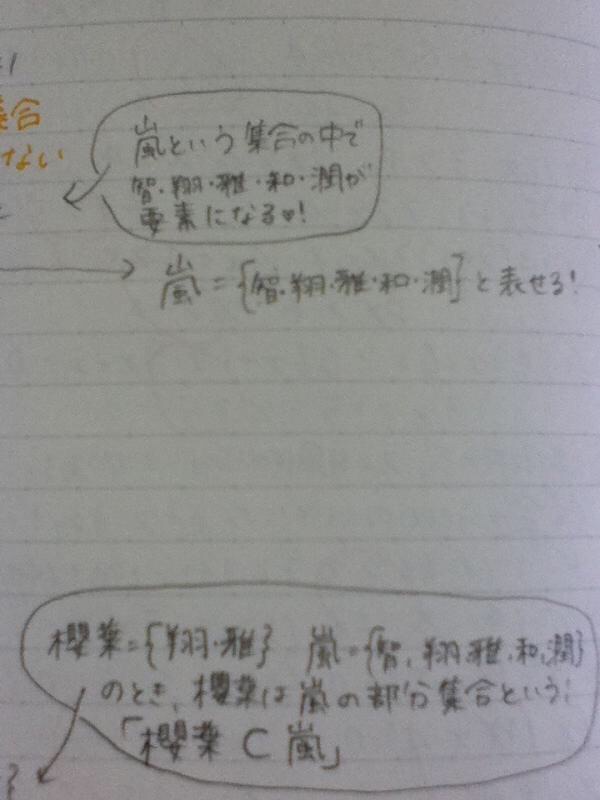 集合
ない
嵐という集合の中で
智・翔・雅・和・潤が
要素になる♥!
嵐={智・翔・雅・和・潤}と表せる!
櫻葉={翔・雅} 嵐={智,翔,雅,和,潤}
のとき、櫻葉は嵐の部分集合という!
「櫻葉⊂嵐」